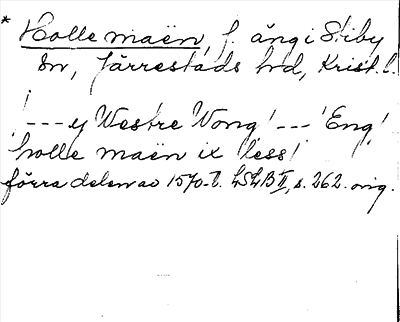 * Holle maën, f. äng i Stiby
sn, Järrestads hd, Krist. l.
'--- y Westre Wong' --- 'Eng'
holle maën ix less'
förra delen av 1570-t. LSLB II, s. 262. orig.